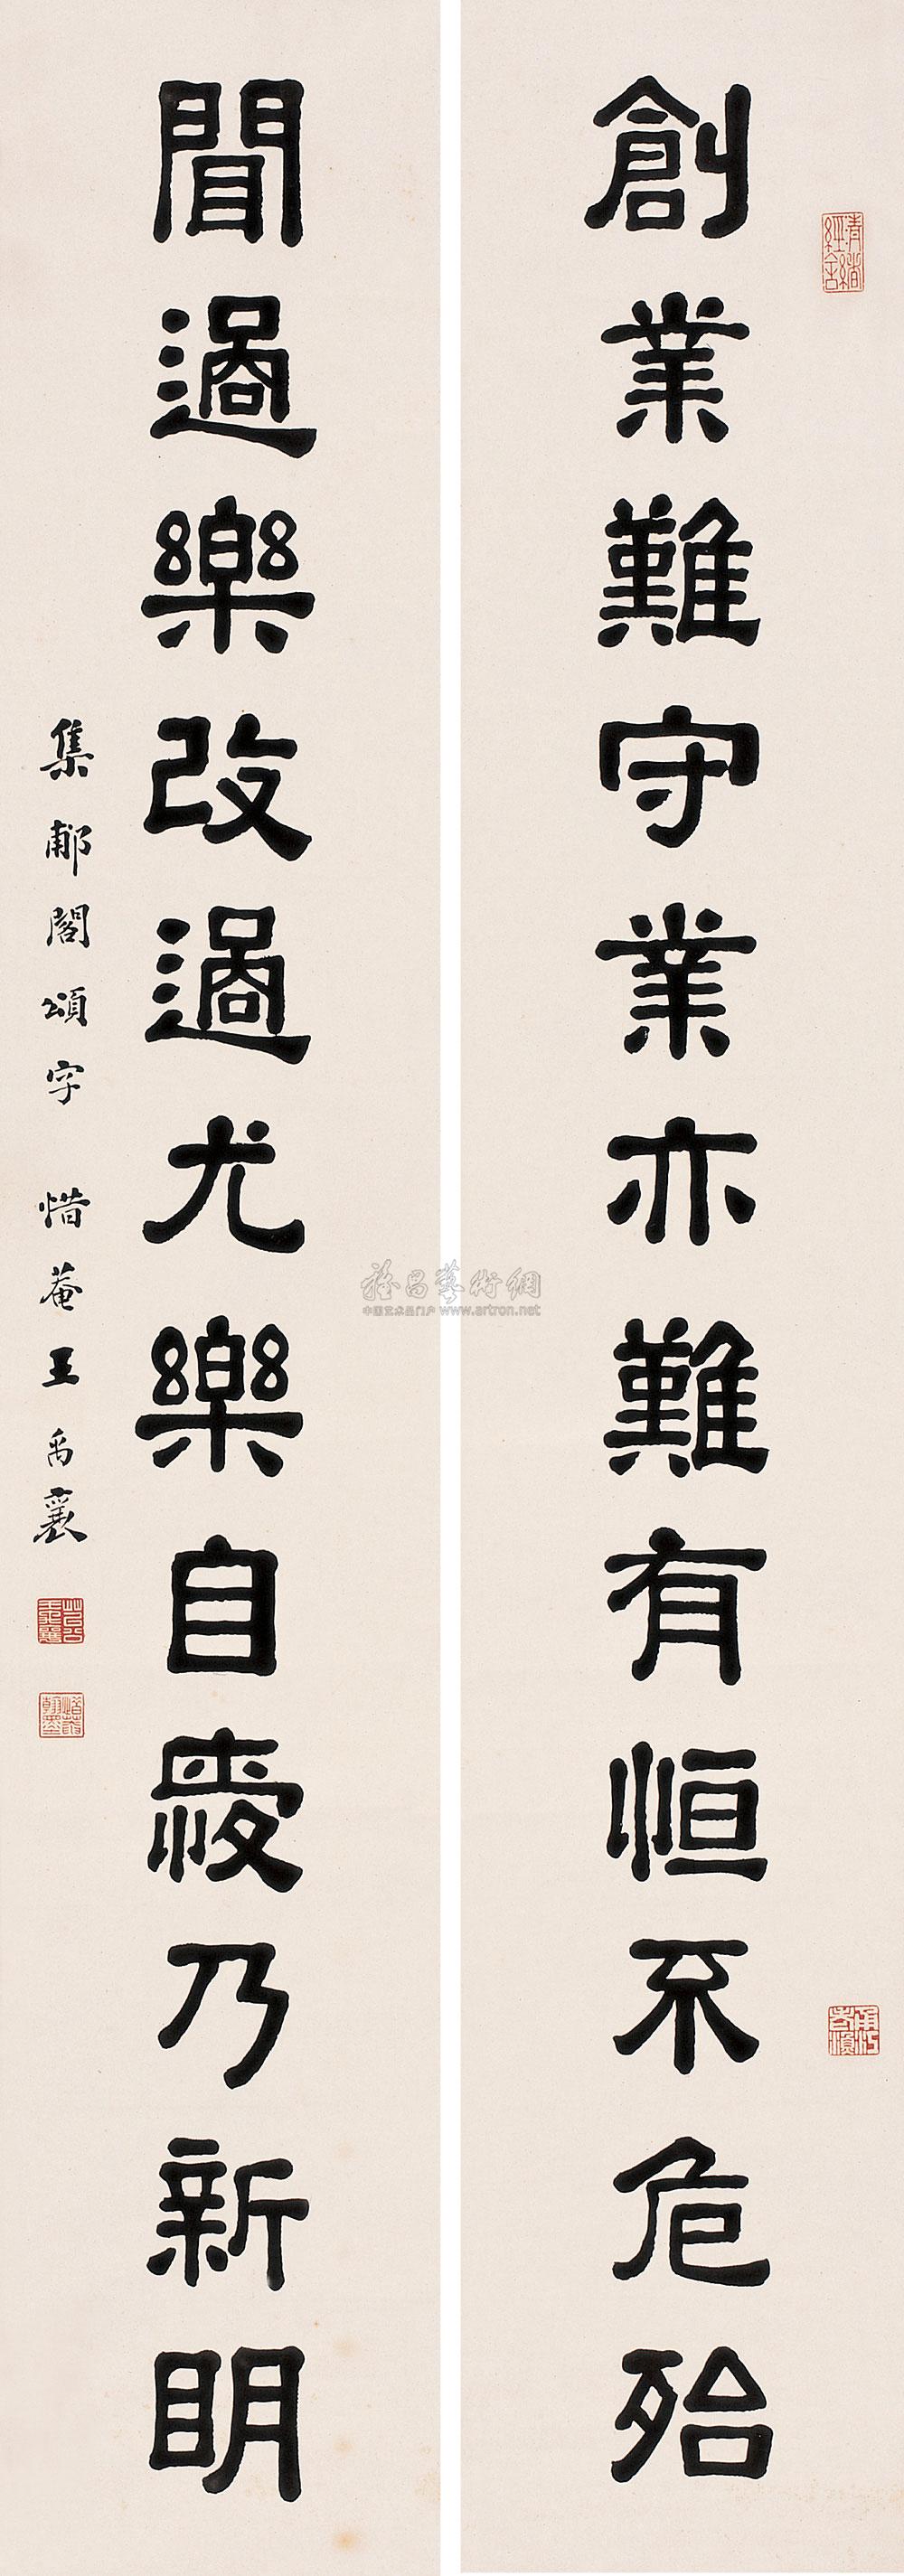 創業難守業亦難有恒不危殆
聞過樂改過尤樂自乃新明
集郙閣頌字 惜菴王禹襄
雅昌藝術網
中国艺术品门户 www.artron.net